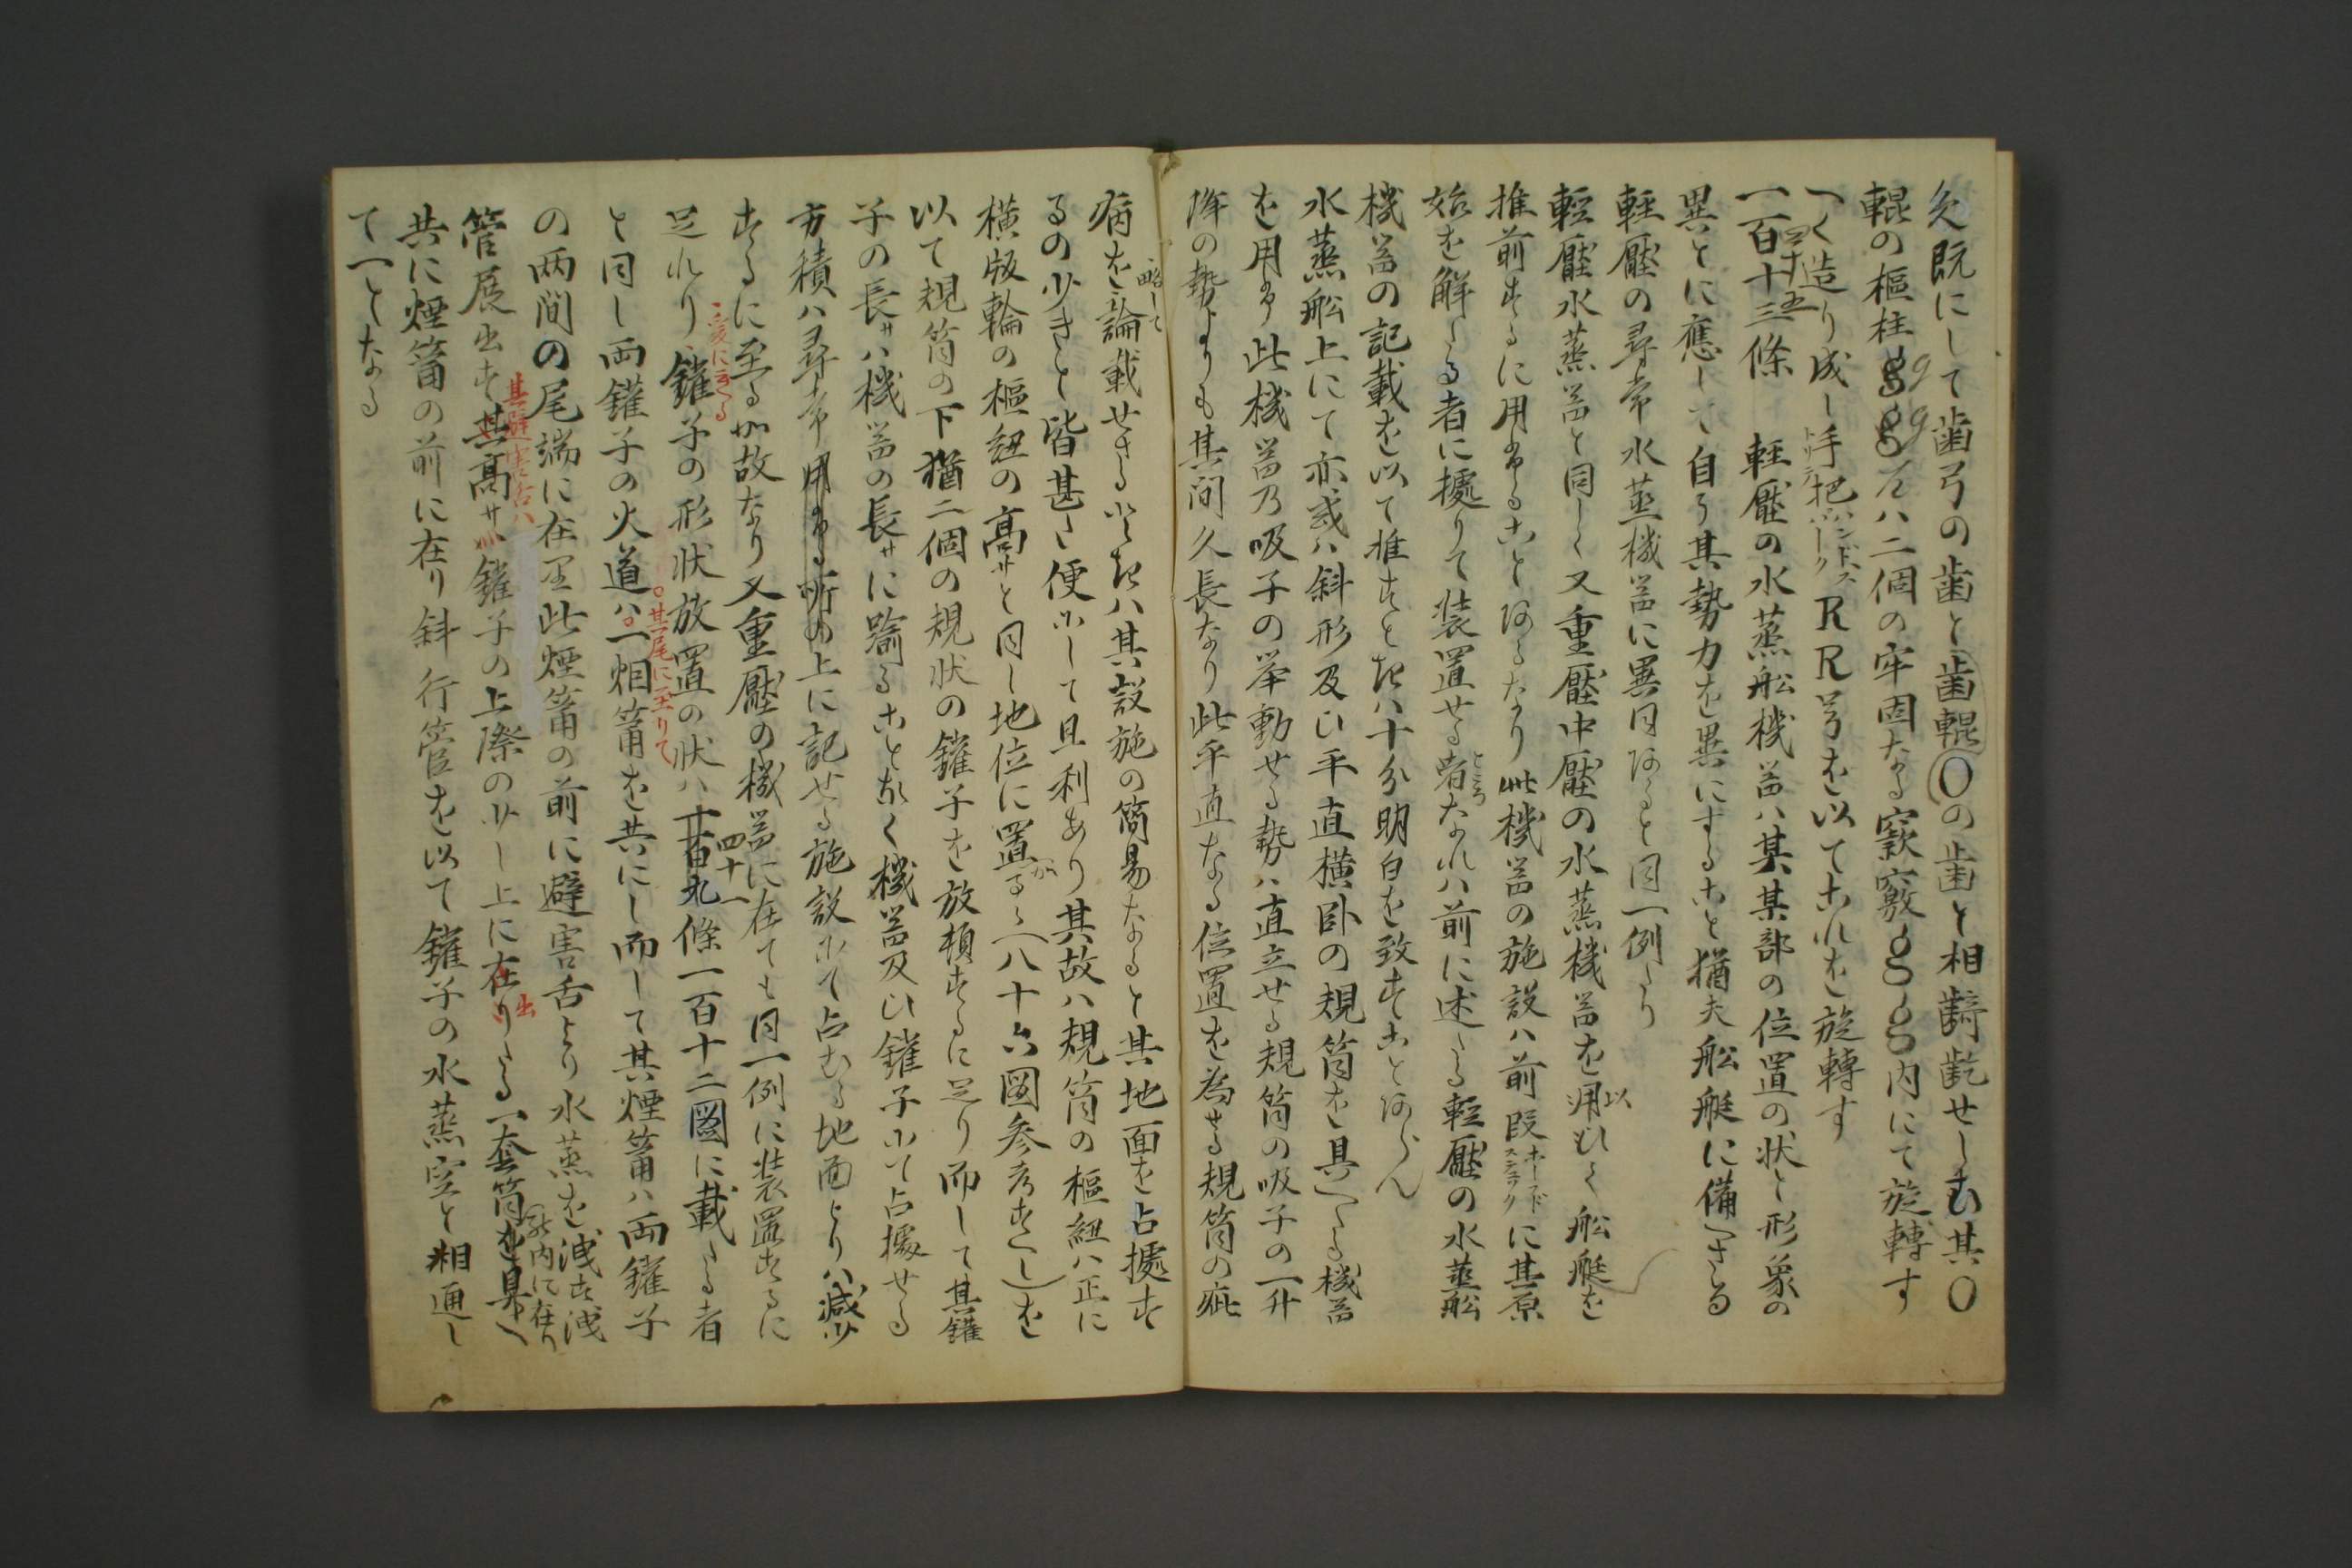 久既にして歯弓の歯と歯輥Oの歯と相齮齕せしむ其O
輥の樞柱gg
gg八二個の牢固なる窾竅gg内にて旋轉す
へく造り成し手把RR号を以てこれを旋轉す
トリテ
ハンドスパーク
一百十三條 軽壓の水蒸舩機器ハ其某部の位置の状と形象の
四十五
異とに應して自ら其勢力を異にすること猶夫舩艇に備へさる
軽壓の尋常水蒸機器に異同あると同一例たり
軽壓水蒸器と同しく又重壓中壓の水蒸機器を用ひて舩艇を
以
推前するに用ゆることあるなり此機器の施設ハ前段に其原
始を解たる者に據りて装置せる者なれハ前に述たる軽壓の水蒸舩
ところ
機器の記載を以て推すときハ十分明白を致すことあらん
水蒸舩上にて亦或ハ斜形及ひ平直横卧の規筒を具へたる機器
を用ゆ此機器乃吸子の挙動せる勢ハ直立せる規筒の吸子の一升
降の勢よりも其間久長なり此平直なる位置を為せる規筒の疵
病を論載せさるときハ其設施の簡易なると其地面を占據す
略して
るの少きと皆甚た便にして且利あり其故ハ規筒の樞紐ハ正に
横版輪の樞紐の高サと同し地位に置る（八十六図参考すへし）を
か
以て規筒の下猶二個の規状の鑵子を放頓するに足り而して其鑵
子の長サハ機器の長サに踰ることなく機器及ひ鑵子にて占據せる
方積ハ尋常用ゆる所の上に記せる施設にて占むる地面よりハ減少
するに至るか故なり又重壓の機器に在ても同一例に装置するに
足れり鑵子の形状放置の状ハ一百九條一百十二圖に載たる者
爰に云る
四十一
と同し両鑵子の火道ハ一烟筩を共にし而して其煙筩ハ両鑵子
其尾に至りて
の両間の尾端に在り此煙筩の前に避害舌より水蒸を洩す洩
管展出す其高サ鑵子の上際の少し上に在りたる一套筒を具へ
其避害舌ハ
出
内に在り
共に煙筩の前に在り斜行管を以て鑵子の水蒸空と相通し
て一となる